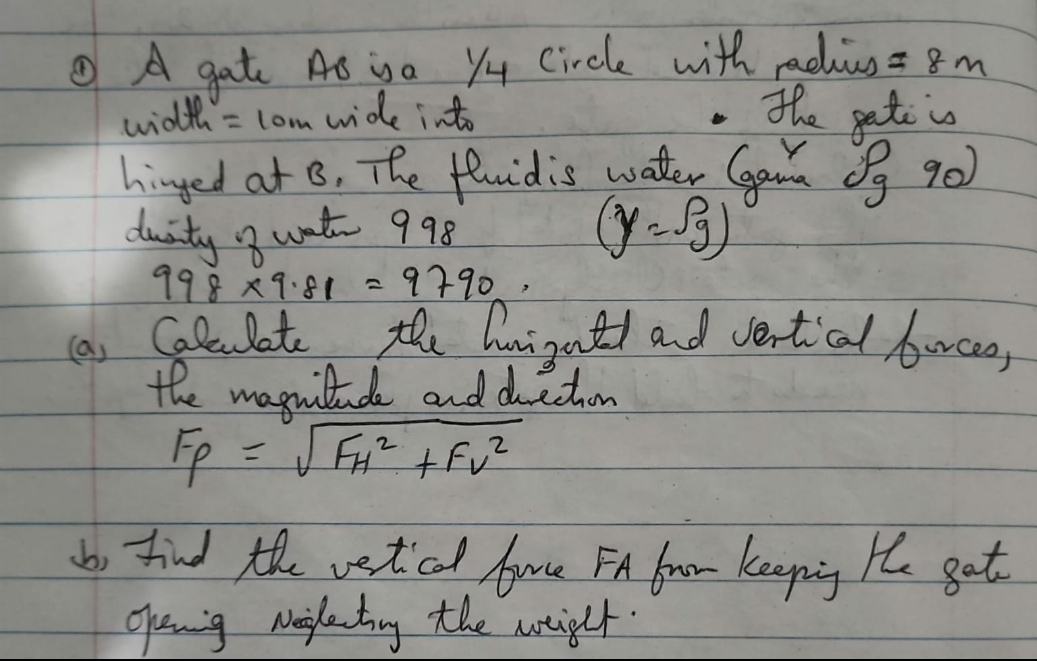 ① A gate AB is a 1/4 Circle with radius = 8m
width = 10m wide into . The gate is
hinged at B. The fluid is water (gama γ ρg 90)
density of water 998 (γ = ρg)
998 × 9.81 = 9790.
(a) Calculate the horizontal and vertical forces,
the magnitude and direction
Fp = √FH² + FV²
b, Find the vertical force FA from keeping the gate
opening Neglecting the weight.